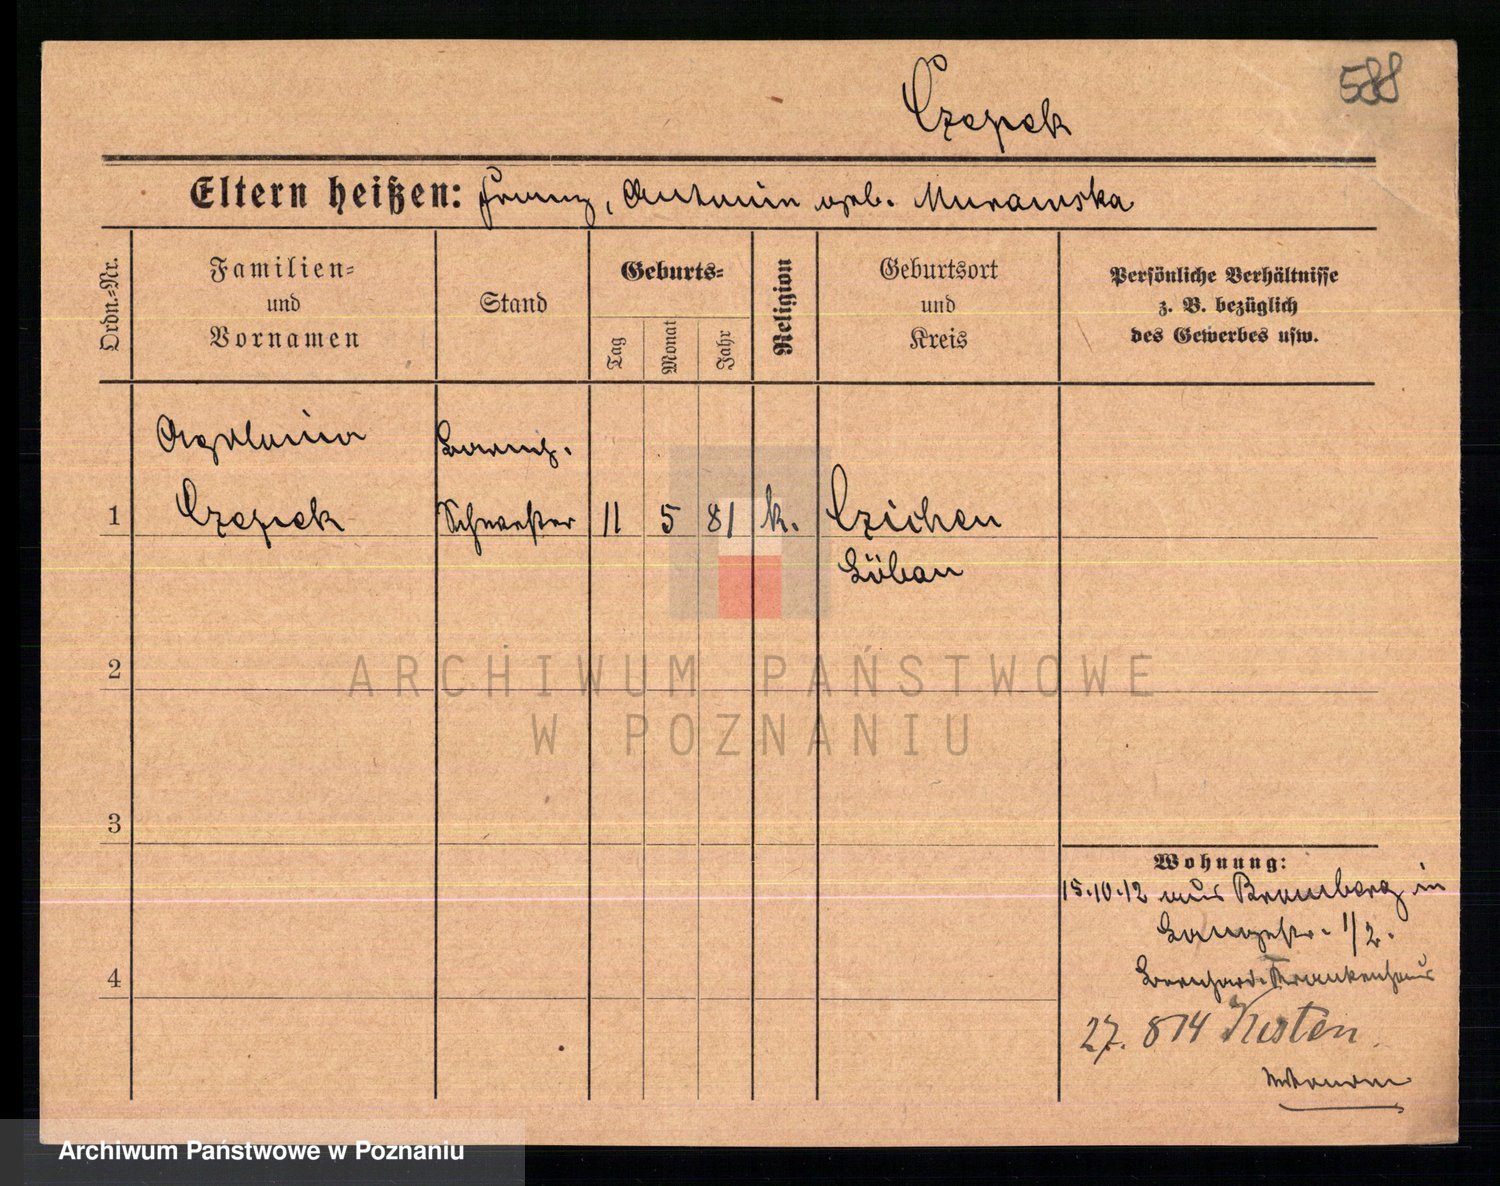 588
Czepek
Eltern heißen: Franz, Antonie geb. Murawska
Ordn.-Nr.
Familien-
und
Vornamen
Stand
Geburts-
Tag
Monat
Jahr
Religion
Geburtsort
und
Kreis
Persönliche Verhältnisse
z. B. bezüglich
des Gewerbes usw.
Barmh.
1
Czepek
Schwester
11
5
81
k.
Czichen
Löbau
2
ARCHIWUM PAŃSTWOWE
W POZNANIU
3
Wohnung:
15.10.12 aus Bromberg in
Langestr. 1/2.
Krankenhaus
4
27. 8 14
Archiwum Państwowe w Poznaniu